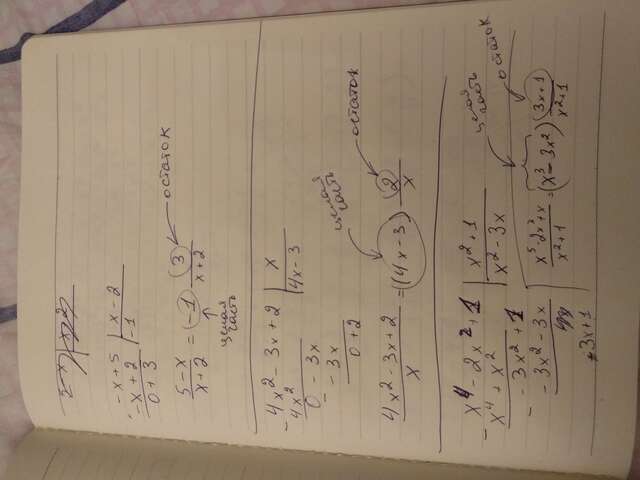 -x+5 | x-2
-x+2 | -1
0+3
5-x / x+2 = -1 3 / x+2 остаток
целая
часть
- 4x² - 3x+2 | x
4x² | 4x-3
0 - 3x
- -3x
0+2
целая
часть
остаток
4x²-3x+2 / x = (4x-3) 2 / x
- x⁴ - 2x²+1 | x²+1
x⁴ + x² | x²-3x
- -3x²+1
-3x²-3x
-3x+1
целая
часть
остаток
x⁵-2x³+x / x²+1 = (x³-3x²) 3x+1 / x²+1